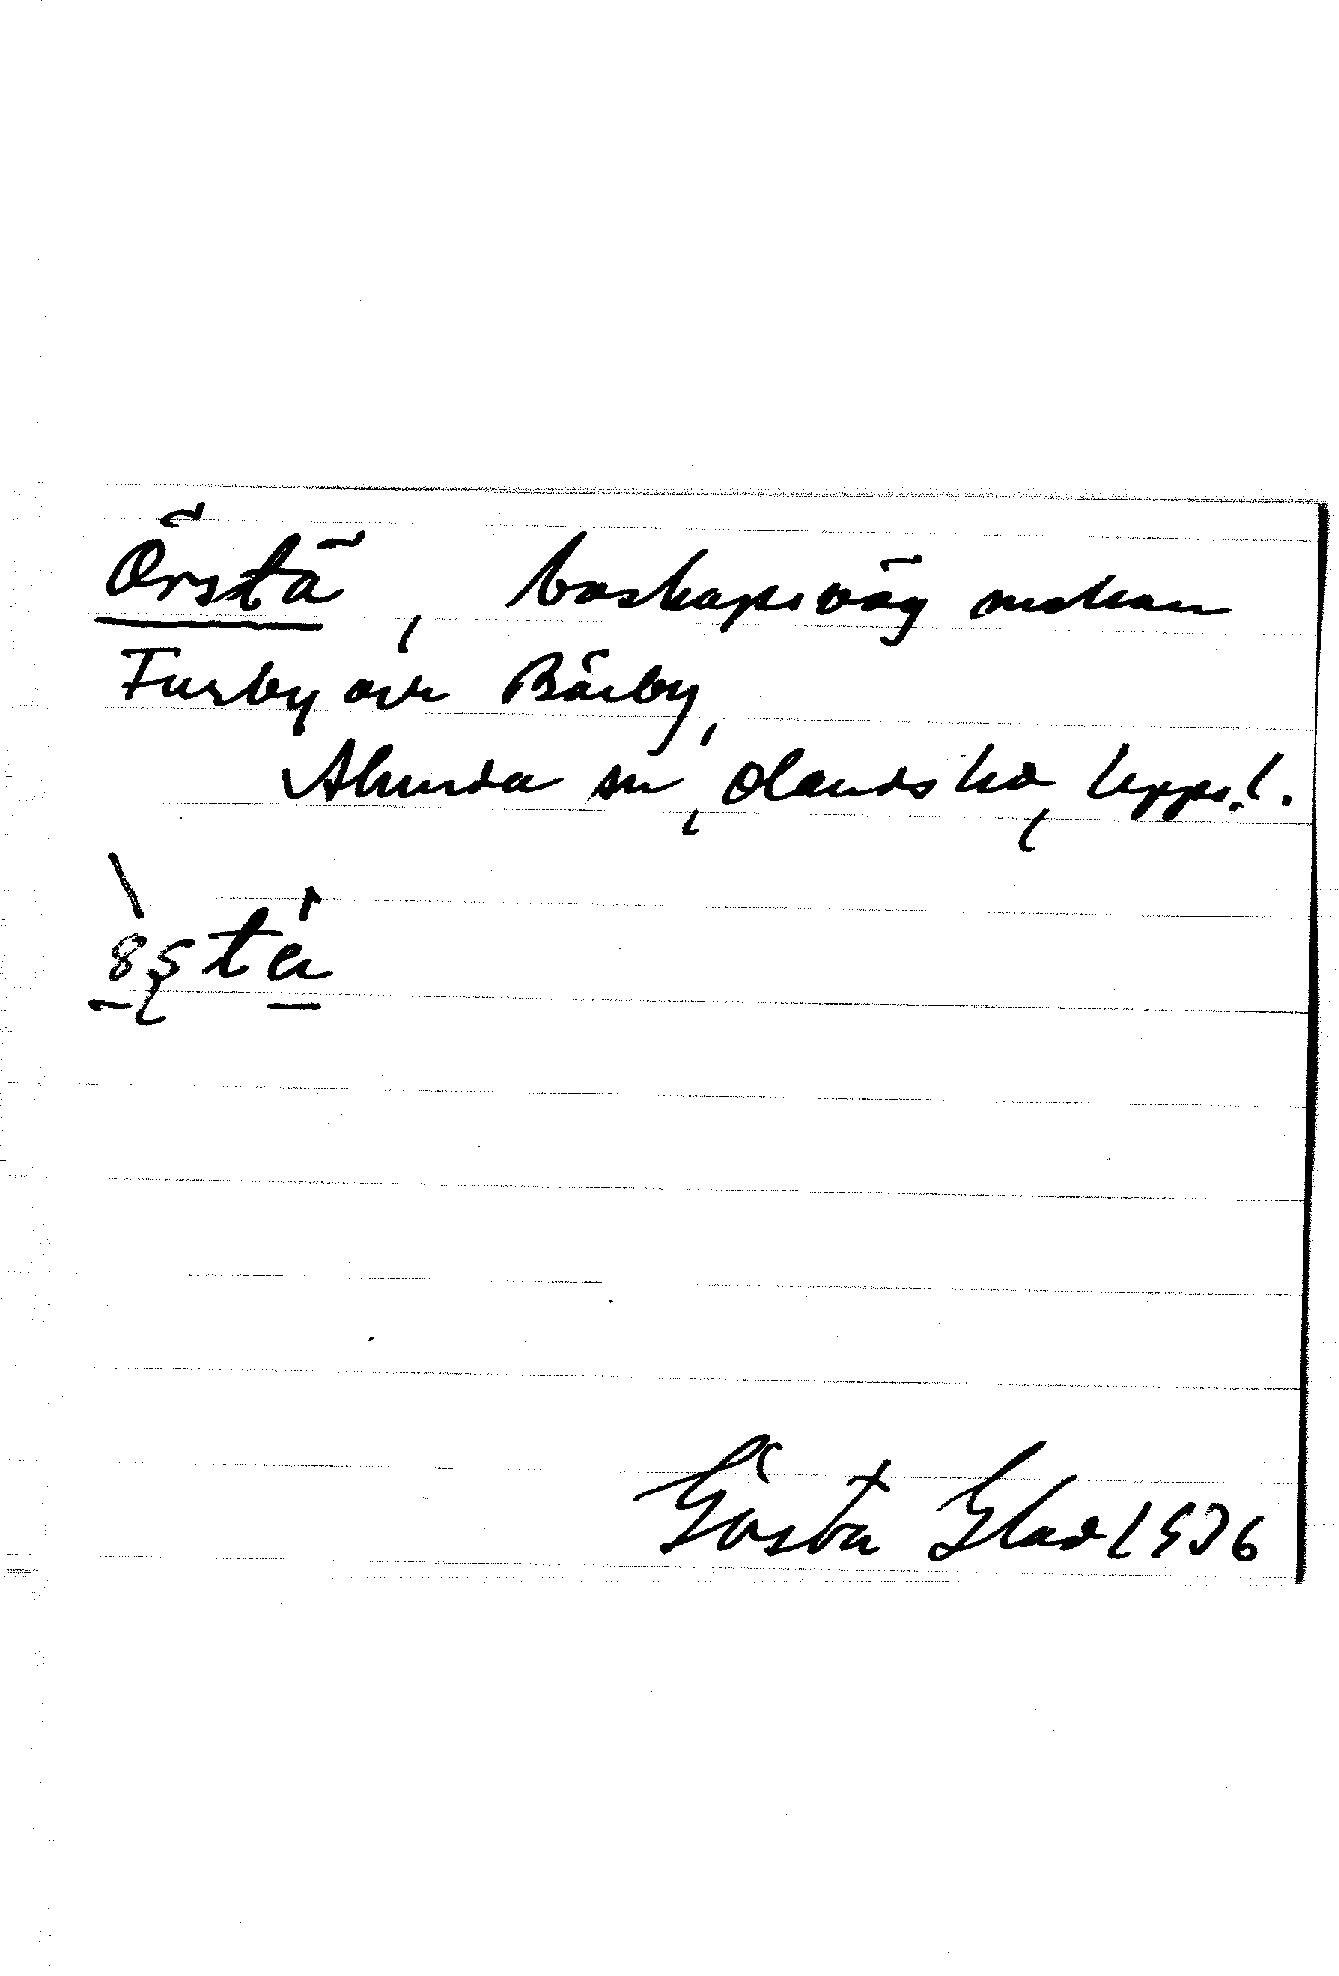 Örstä, boskapsväg mellan
Furby och Bärby,
Alunda sn, Olands hd, Upps. l.
Gösta Glad 1936